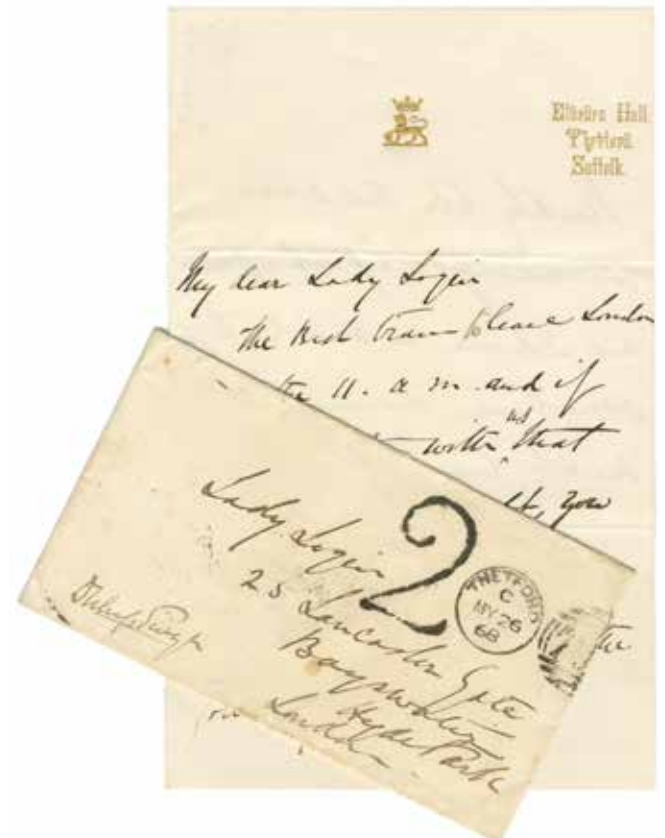 Elveden Hall
Thetford.
Suffolk.
My dear Lady Login
The best train to leave London
11. a m. and if
with us that
you
Lady Login
25 Lancaster Gate
Bayswater
Hyde Park
London
2
THETFORD
C
MY 26
68